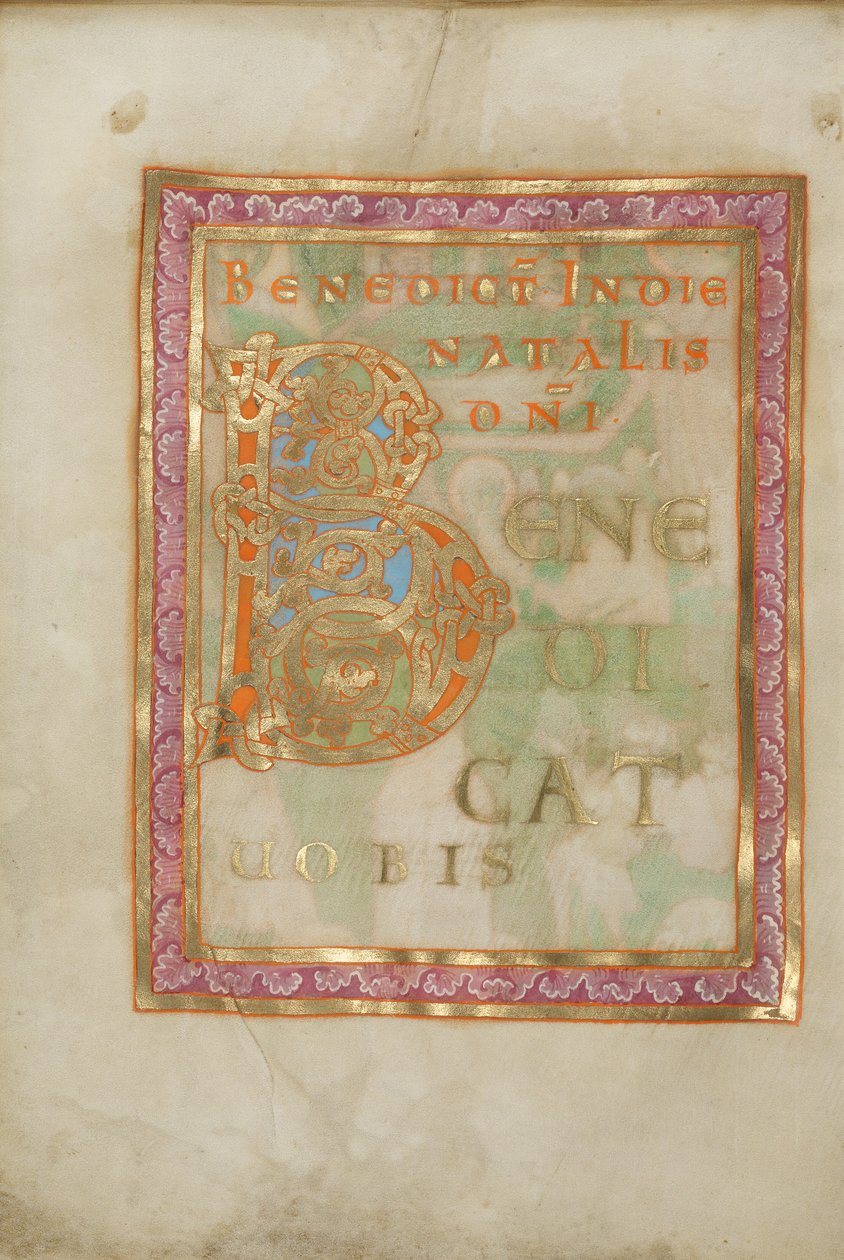 BENEDICT̄. IN DIE
NATALIS
DN̄I.
BENE
DI
CAT
UOBIS